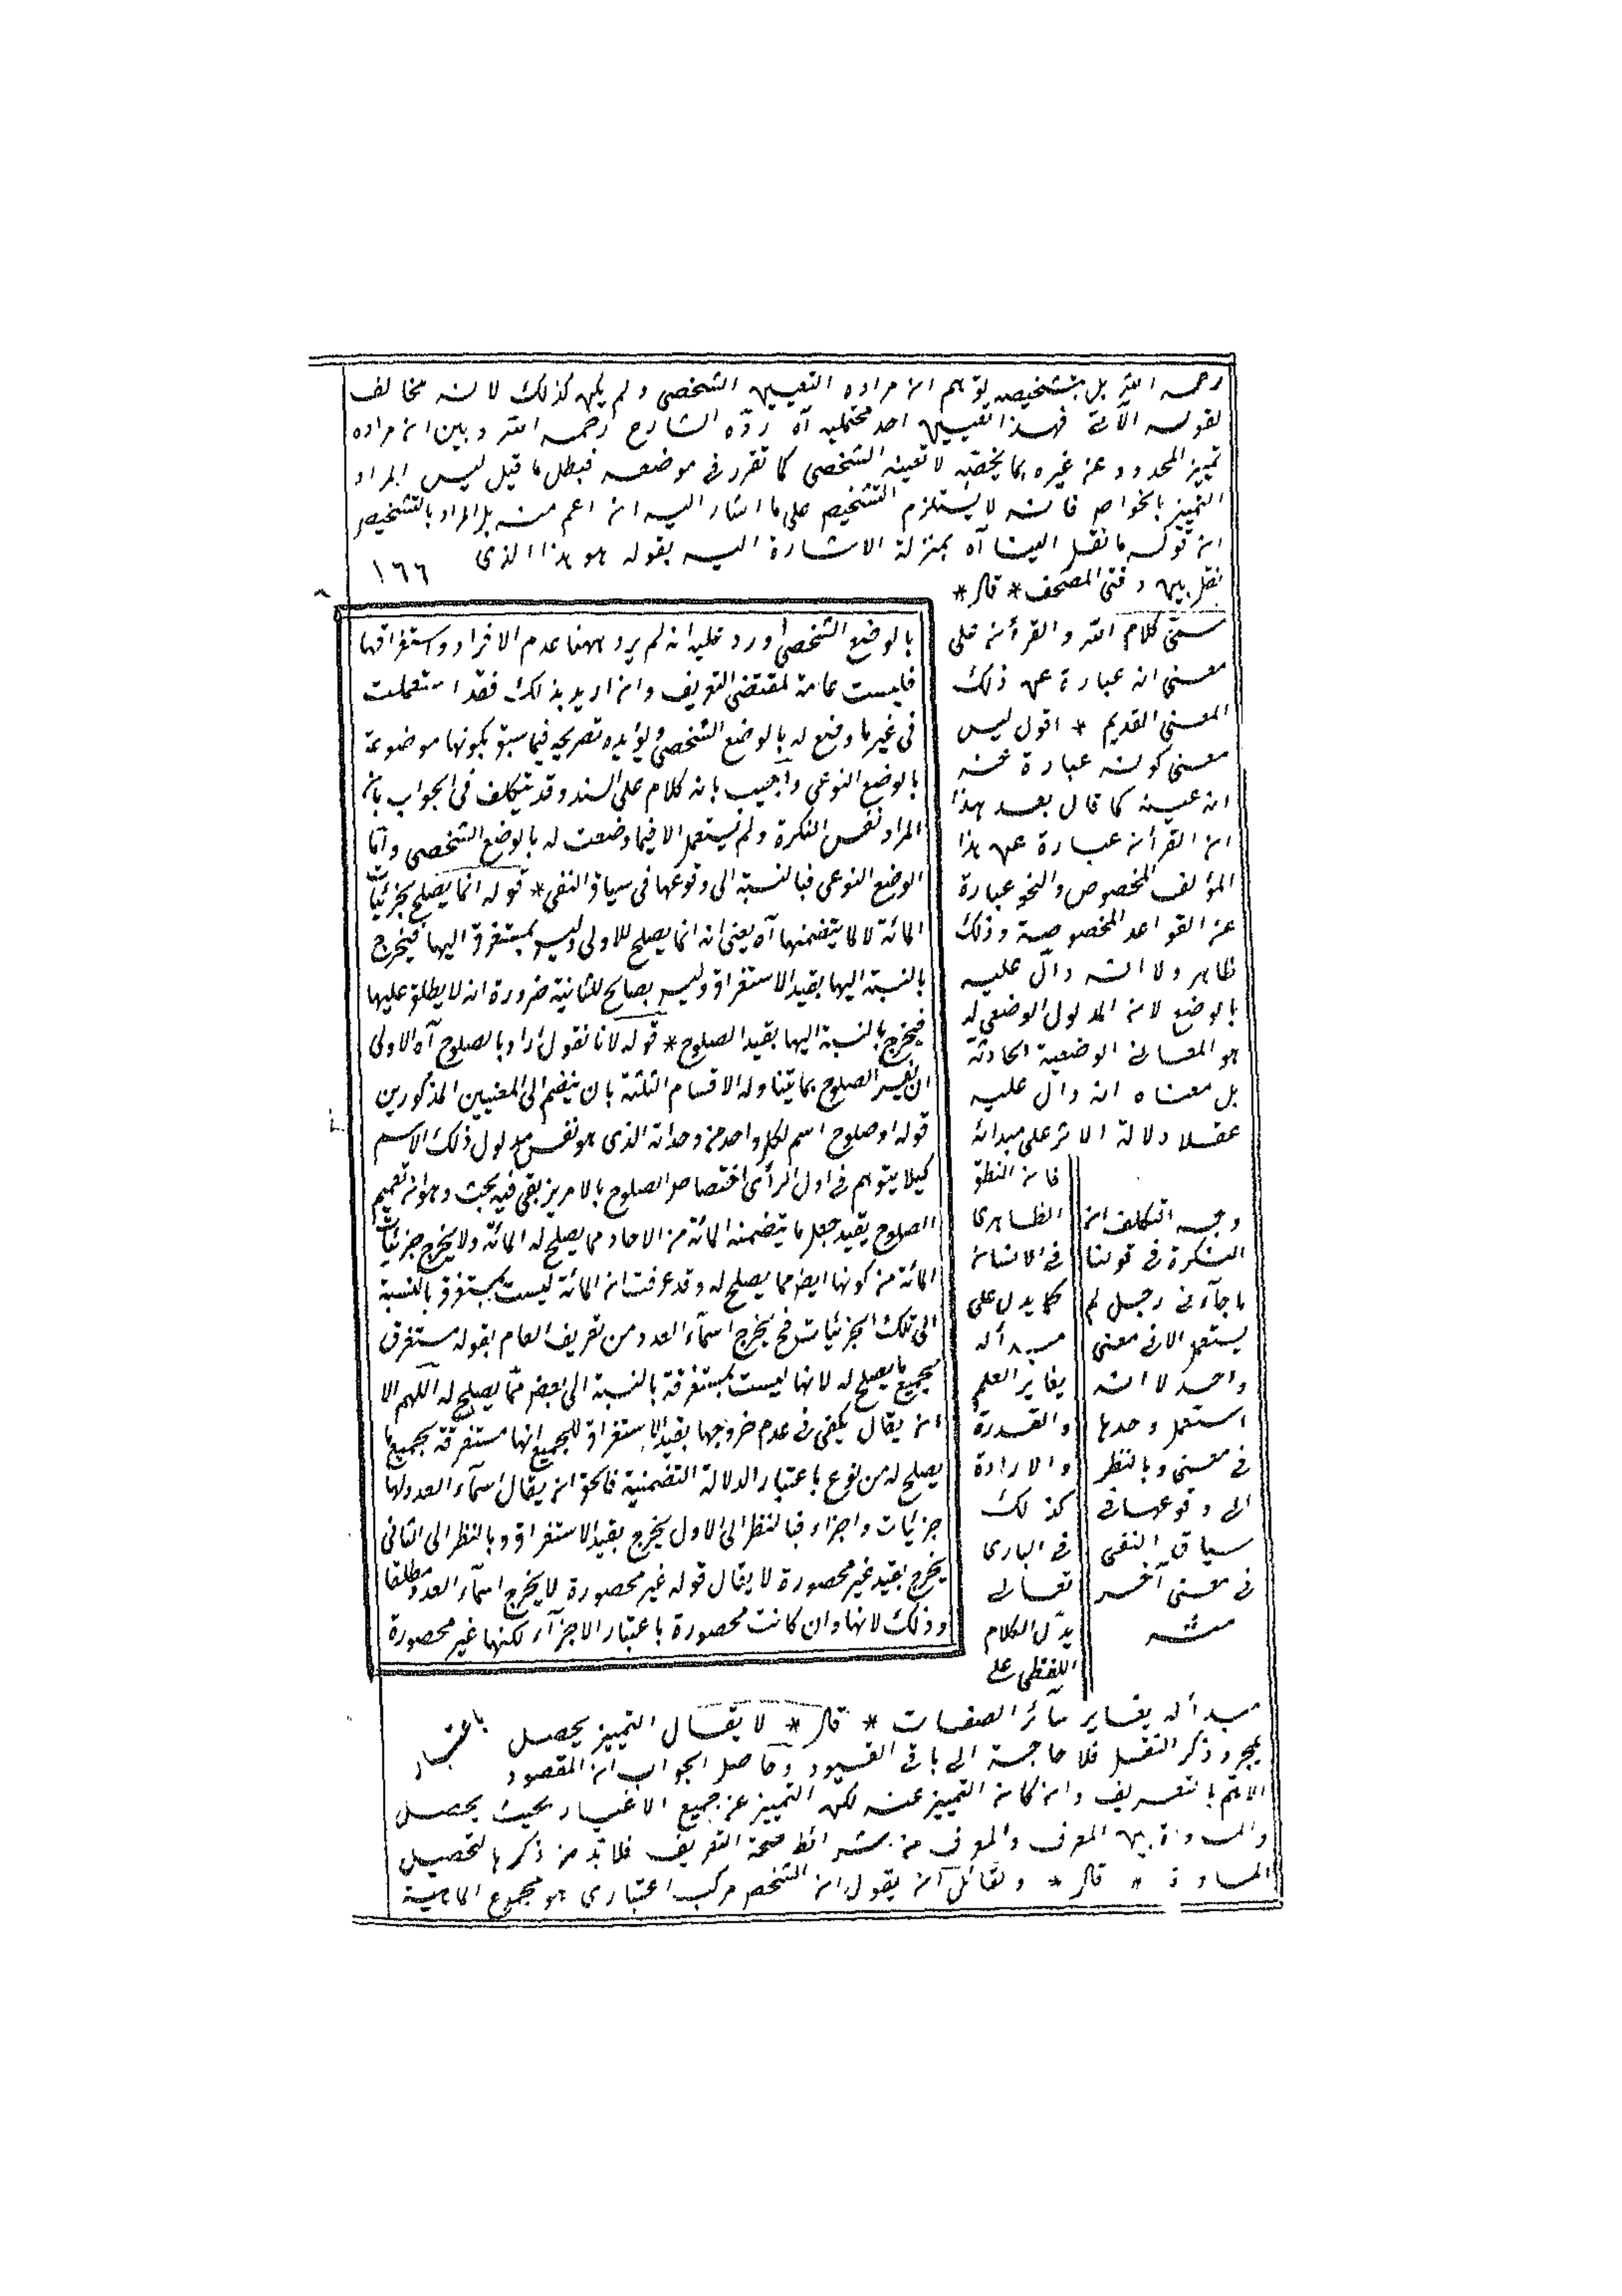 رحمه الله بل بتشخيصه يوهم ان مراده التعيين الشخصى ولم يكن كذلك لانه مخالف
لقوله الآتى فهذا تعيين احد محتمليه آه ردّه الشارح رحمه الله وبين ان مراده
تمييز المحدود عن غيره بما يخصّه لا تعينه الشخصى كما تقرر فى موضعه فبطل ما قيل ليس المراد
التميز بالخواص فانه لا يستلزم التشخيص على ما اشار اليه ان اعم منه بل المراد بالتشخيص
ان قوله ما نقل الينا آه بمنزلة الاشارة اليه بقوله هو هذا الذى
١٦٦
نقل بين دفتى المصحف * قال *
سمّى كلام الله والقرأن على
معنى انه عبارة عن ذلك
المعنى القديم * اقول ليس
معنى كونه عبارة عنه
انه عينه كما قال بعد هذا
ان القرأن عبارة عن هذا
المؤلف المخصوص والنحو عبارة
عن القواعد المخصوصة وذلك
ظاهر ولا انه دالّ عليه
بالوضع لان المدلول الوضعى له
هو المعانى الوضعية الحادثة
بل معناه انه دال عليه
عقلا دلالة الاثر على مبدأه
فان النطق
الظاهرى
فى الانسان
كما يدل على
مبدأ له
يغاير العلم
والقدرة
والارادة
كذلك
فى البارى
تعالى
يدّل الكلام
اللفظى على
مبدأ له يغاير سائر الصفات * قال * لا يقال التمييز يحصل
بمجرد ذكر النقل فلا حاجة الى باقى القيود وحاصل الجواب ان المقصود
الاهم بالتعريف وان كان التمييز عنه لكن التمييز عن جميع الاغيار بحيث يحصل
والمساواة بين المعرف والمعرف من شرائط صحة التعريف فلا بدّ من ذكرها لتحصيل
المساواة * قال * ولقائل ان يقول ان الشخص مركب اعتبارى هو مجموع الماهية
وجه التكلف ان
النكرة فى قولنا
ما جآءنى رجل لم
يستعمل الا فى معنى
واحد لا انه
استعمل وحدها
فى معنى وبالنظر
الى وقوعها فى
سياق النفى
فى معنى آخر
منه
بالوضع الشخصى اورد عليه انه لم يرد ههنا عدم الافراد واستغراقها
فليست عامة لمقتضى التعريف وان اريد بذلك فقد استعملت
فى غير ما وضع له بالوضع الشخصى ويؤيده تصريحه فيما سبق بكونها موضوعة
بالوضع النوعى واجيب بانه كلام على السند وقد يتكلف فى الجواب بان
المراد نفس النكرة ولم يستعمل الا فيما وضعت له بالوضع الشخصى وامّا
الوضع النوعى فبالنسبة الى وقوعها فى سياق النفى * قوله انما يصلح لجزئيات
المائة لا لما يتضمنها آه يعنى انه انما يصلح للاولى وليس بمستغرق اليها فيخرج
بالنسبة اليها بقيد الاستغراق وليس بصالح للثانية ضرورة انه لا يطلق عليها
فيخرج بالنسبة اليها بقيد الصلوح * قوله لانا نقول اراد بالصلوح آه الاولى
ان يفسر الصلوح بما يتناوله الاقسام الثلثة بان ينضم الى المعنيين المذكورين
قوله او صلوح اسم لكل واحد من وحداته الذى هو نفس مدلول ذلك الاسم
كيلا يتوهم فى اول الرأى اختصاص الصلوح بالامرين بقى فيه بحث وهو ان تعميم
الصلوح يقيد جعل ما يتضمنه المائة من الاحاد مما يصلح له المائة ولا يخرج جزئيات
المائة من كونها ايضا مما يصلح له وقد عرفت ان المائة ليست بمستغرق بالنسبة
الى تلك الجزئيات فح يخرج اسمآء العدد من تعريف العام بقوله مستغرق
لجميع ما يصلح له لانها ليست بمستغرقة بالنسبة الى بعض مما يصلح له اللهم الا
ان يقال يكفى فى عدم خروجها بقيد الاستغراق للجميع انها مستغرقة لجميع ما
يصلح له من نوع باعتبار الدلالة التضمنية فالحق ان يقال اسمآء العدد لها
جزئيات واجزاء فبالنظر الى الاول يخرج بقيد الاستغراق وبالنظر الى الثانى
يخرج بقيد غير محصورة لا يقال قوله غير محصورة لا يخرج اسمآء العدد مطلقا
وذلك لانها وان كانت محصورة باعتبار الاجزآء لكنها غير محصورة
باعتبار